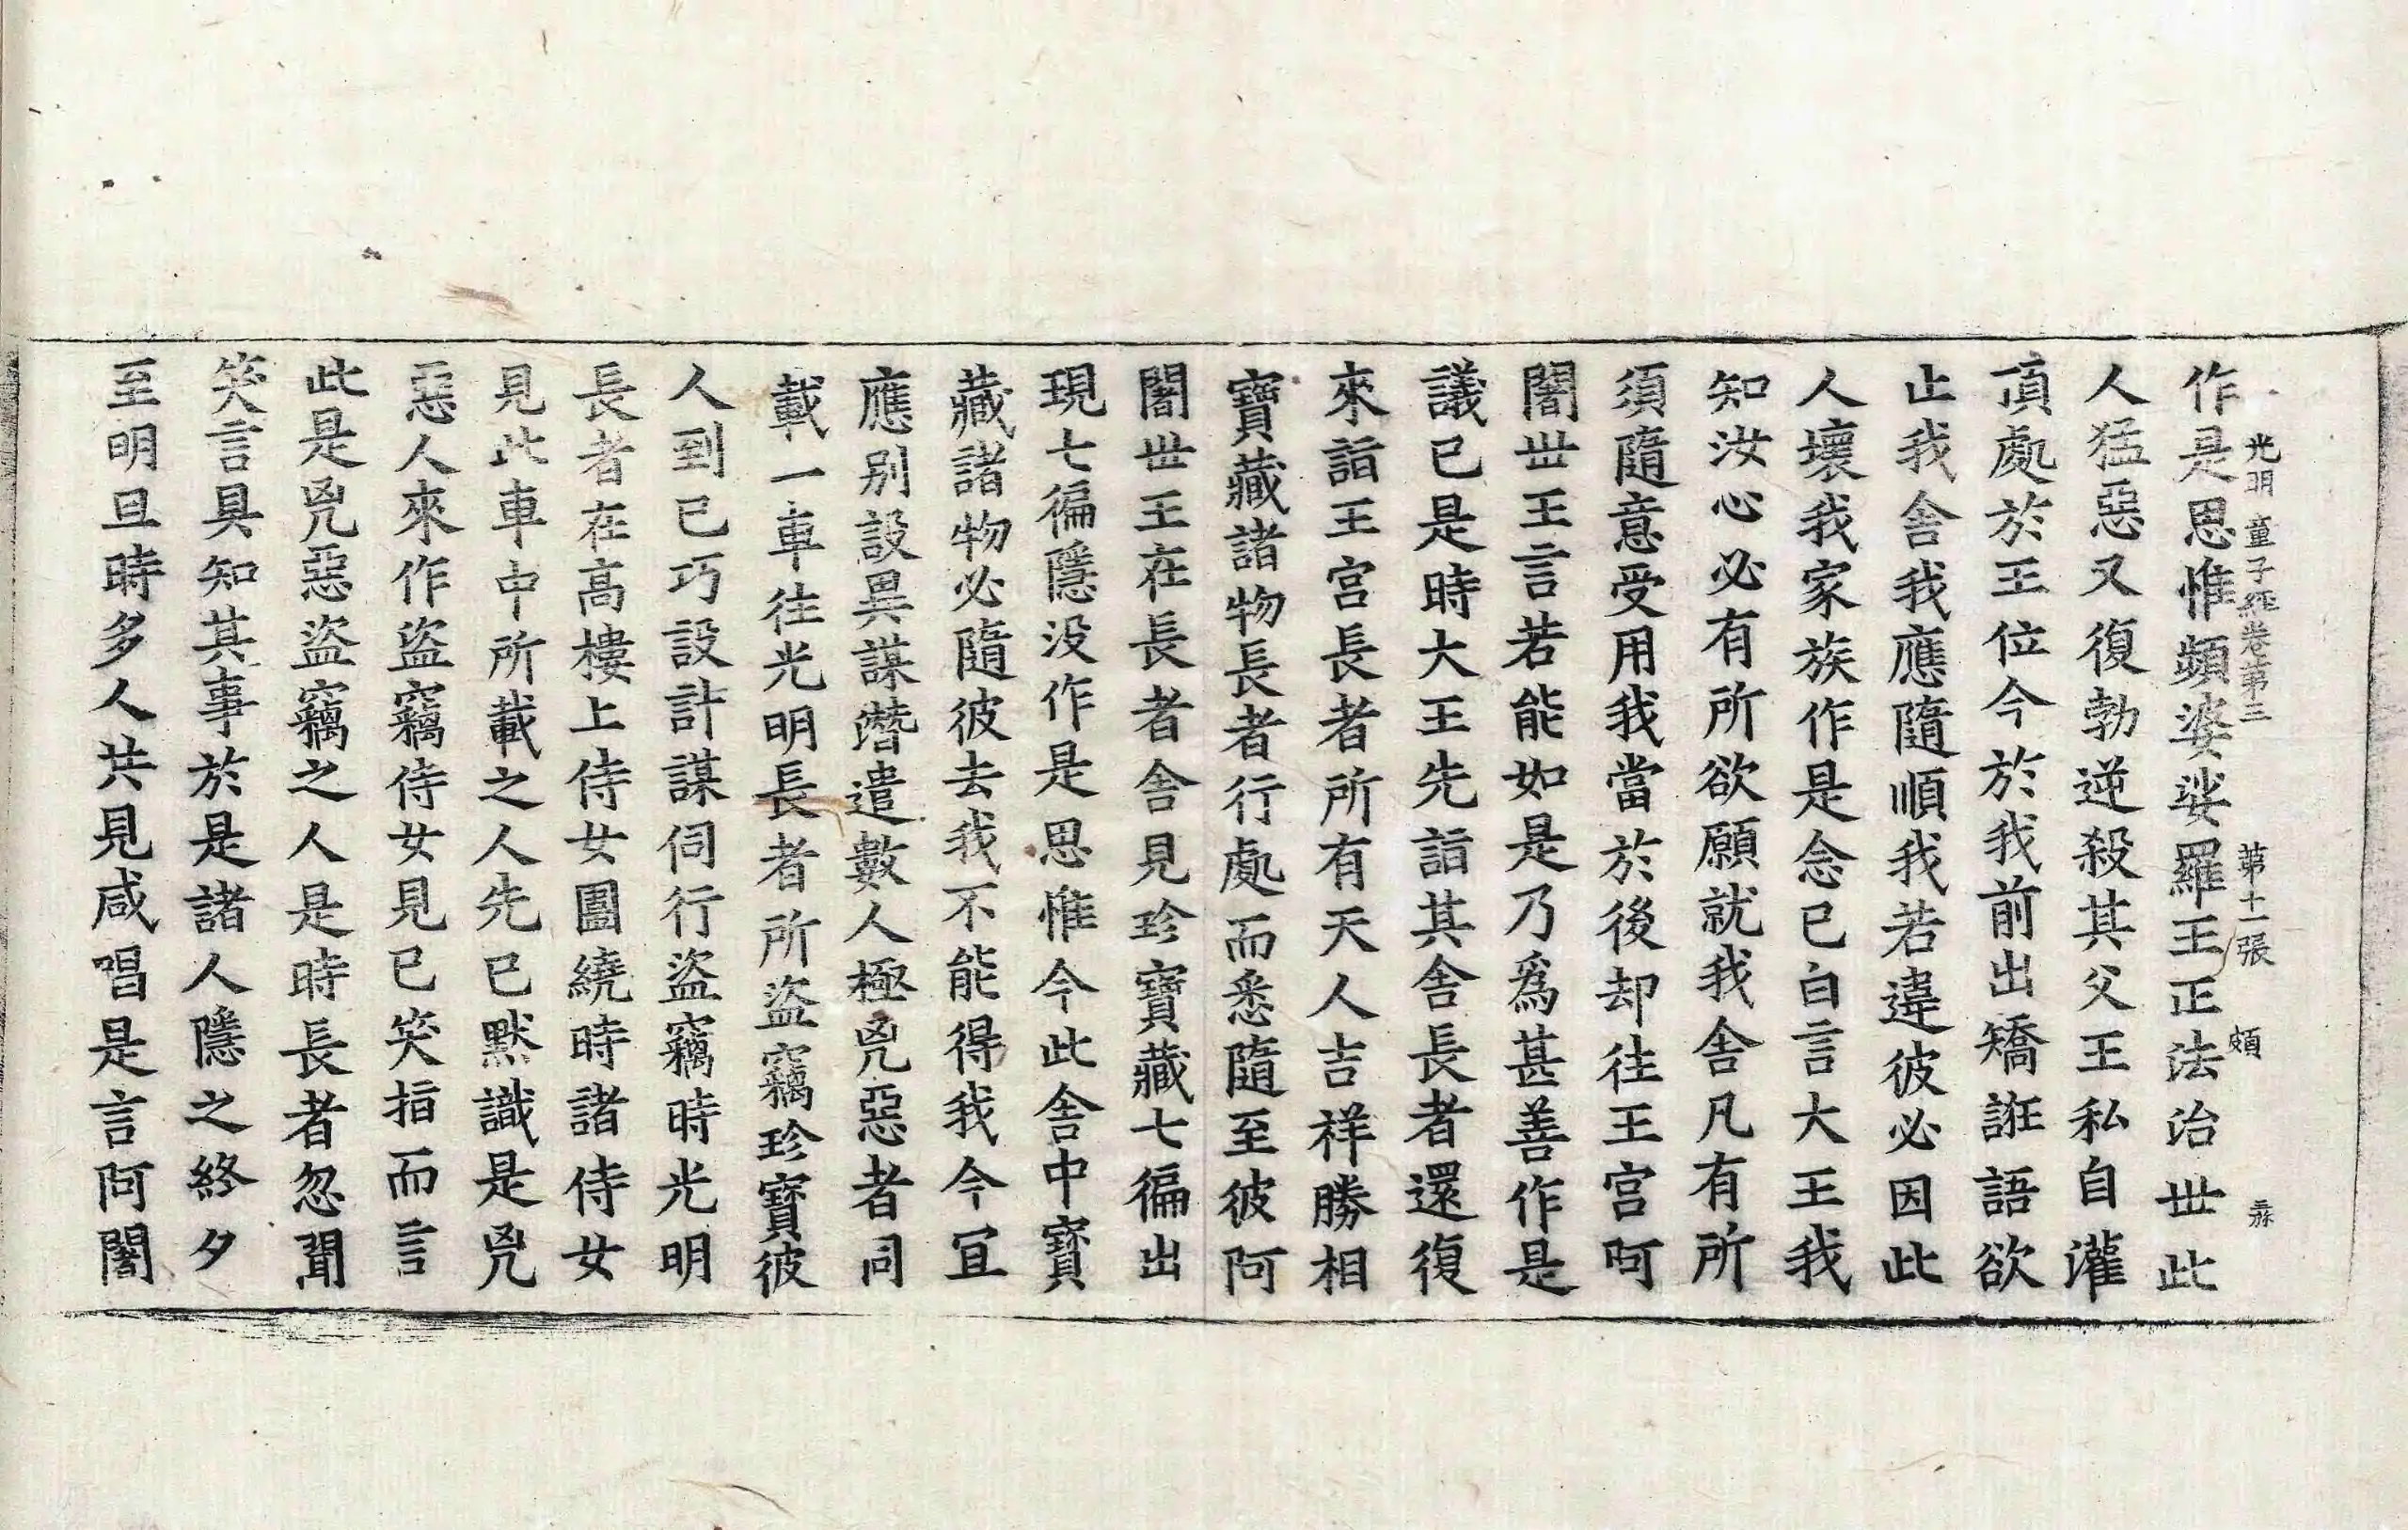 光明童子經卷第三　第十一張　頗
作是思惟頻婆娑羅王正法治世此
人猛惡又復勃逆殺其父王私自灌
頂處於王位今於我前出矯誑語欲
止我舍我應隨順我若違彼必因此
人壞我家族作是念已白言大王我
知汝心必有所欲願就我舍凡有所
須隨意受用我當於後却往王宮阿
闍世王言若能如是乃爲甚善作是
議已是時大王先詣其舍長者還復
來詣王宮長者所有天人吉祥勝相
寶藏諸物長者行處而悉隨至彼阿
闍世王在長者舍見珍寶藏七徧出
現七徧隱没作是思惟今此舍中寶
藏諸物必隨彼去我不能得我今宜
應別設異謀潛遣數人極兇惡者同
載一車往光明長者所盜竊珍寶彼
人到已巧設計謀伺行盜竊時光明
長者在高樓上侍女圍繞時諸侍女
見此車中所載之人先已默識是兇
惡人來作盜竊侍女見已笑指而言
此是兇惡盜竊之人是時長者忽聞
笑言具知其事於是諸人隱之終夕
至明旦時多人共見咸唱是言阿闍